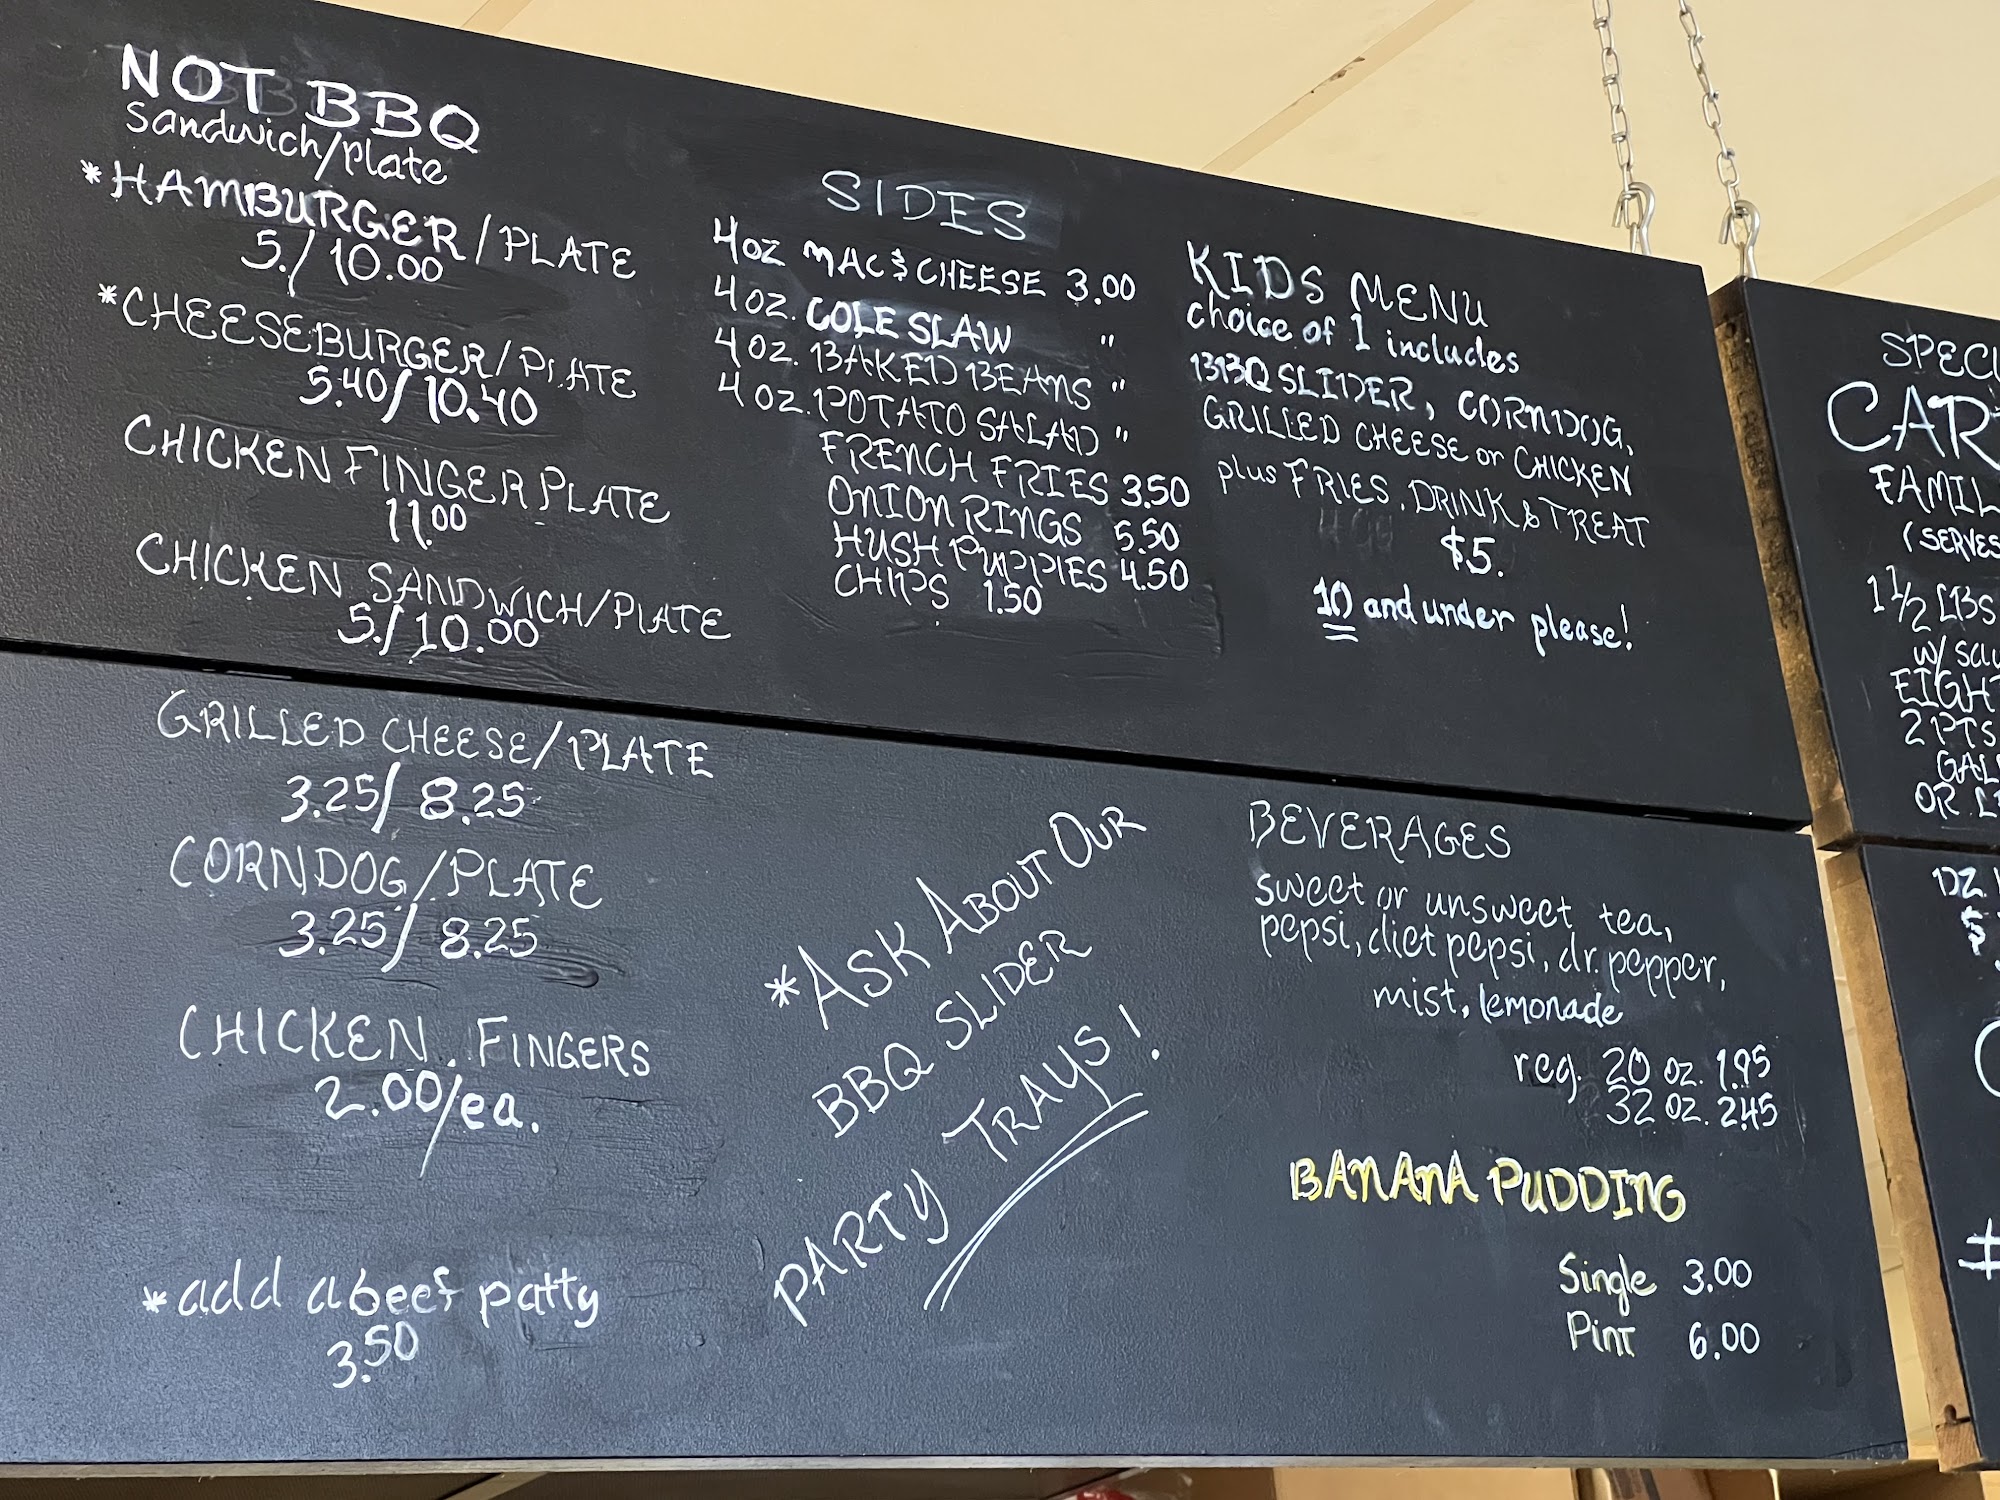 NOT BBQ
Sandwich/plate
*HAMBURGER/PLATE
5./10.00
*CHEESEBURGER/PLATE
5.40/10.40
CHICKEN FINGER PLATE
11.00
CHICKEN SANDWICH/PLATE
5./10.00
GRILLED CHEESE/PLATE
3.25/8.25
CORNDOG/PLATE
3.25/8.25
CHICKEN FINGERS
2.00/ea.
*add a beef patty
3.50
SIDES
4oz MAC & CHEESE 3.00
4oz. COLE SLAW "
4oz. BAKED BEANS "
4oz. POTATO SALAD "
FRENCH FRIES 3.50
ONION RINGS 5.50
HUSH PUPPIES 4.50
CHIPS 1.50
*ASK ABOUT OUR
BBQ SLIDER
PARTY TRAYS!
KIDS MENU
choice of 1 includes
BBQ SLIDER, CORNDOG,
GRILLED CHEESE or CHICKEN
plus FRIES, DRINK & TREAT
$5.
10 and under please!
BEVERAGES
sweet or unsweet tea,
pepsi, diet pepsi, dr. pepper,
mist, lemonade
reg. 20 oz. 1.95
32 oz. 2.45
BANANA PUDDING
Single 3.00
Pint 6.00
SPECI
CAR
FAMIL
(SERVES
1 1/2 LBS
W/
EIGHT
2 PTS
GAL
OR
DZ.
$